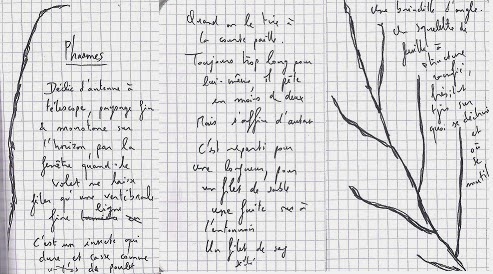 Phasmes
d'antenne à
télescope, paysage fin
& monotone sur
l'horizon par la
fenêtre quand le
volet ne laisse
filer qu'une vertébrale
fine ligne
C'est un insecte qui
dure, et casse comme
de poulet
Quand on le tire à
la courte paille.
Toujours trop long pour
lui-même, il pète
en moins de deux
Mais s'affine d'autant
C'est reparti pour
une longueur, pour
un filet de sable
une fuite
l'entonnoir
Un filet de
Une brindille d'angle.
Un squelette de
feuille à
structure
tige sur
quoi se déchire
et
où
se
mutile